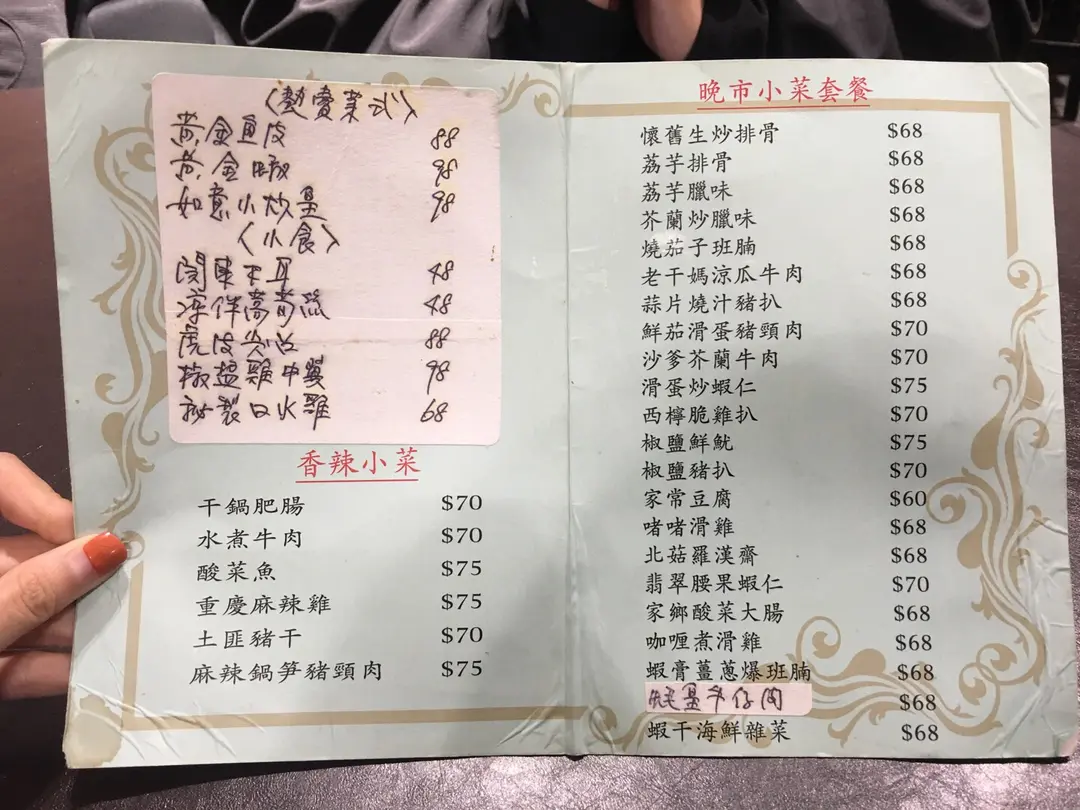 〈熱賣菜式〉
黃金魚皮 88
黃金蝦 98
如意小炒皇 98
〈小食〉
関東木耳 48
涼伴萵苣絲 48
虎皮尖椒 88
椒盐雞中翼 98
祕製口水雞 68
香辣小菜
干鍋肥腸 $70
水煮牛肉 $70
酸菜魚 $75
重慶麻辣雞 $75
土匪豬干 $70
麻辣鍋笋豬頸肉 $75
晚市小菜套餐
懷舊生炒排骨 $68
荔芋排骨 $68
荔芋臘味 $68
芥蘭炒臘味 $68
燒茄子班腩 $68
老干媽涼瓜牛肉 $68
蒜片燒汁豬扒 $68
鮮茄滑蛋豬頸肉 $70
沙爹芥蘭牛肉 $70
滑蛋炒蝦仁 $75
西檸脆雞扒 $70
椒鹽鮮魷 $75
椒鹽豬扒 $70
家常豆腐 $60
啫啫滑雞 $68
北菇羅漢齋 $68
翡翠腰果蝦仁 $70
家鄉酸菜大腸 $68
咖喱煮滑雞 $68
蝦膏薑蔥爆班腩 $68
牛仔肉 $68
蝦干海鮮雜菜 $68